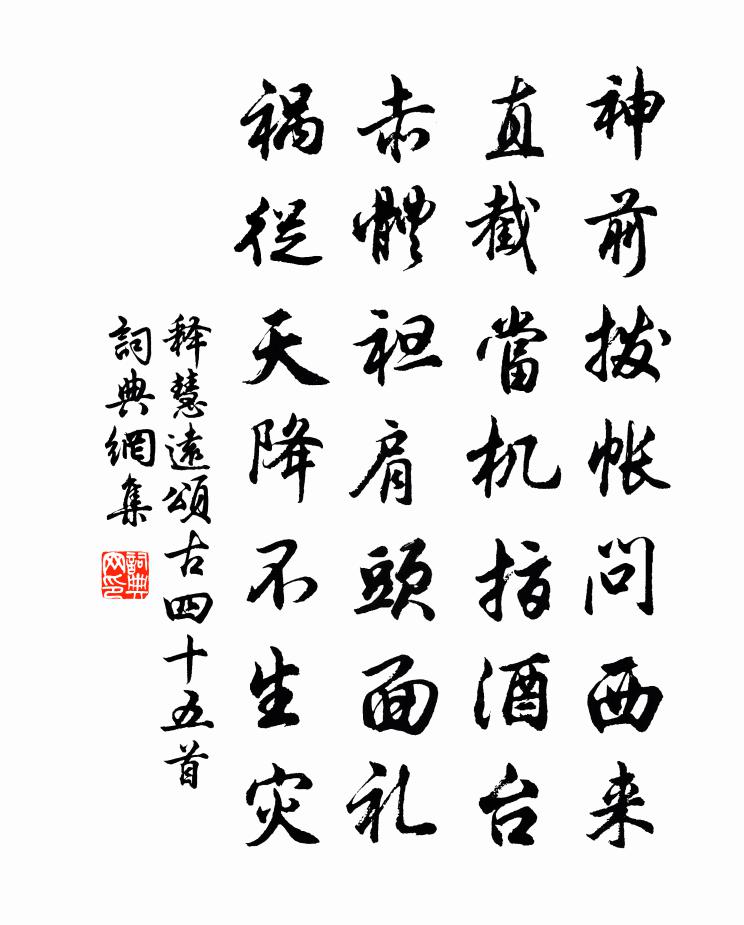 神前拨帐问西来
直截當机指酒台
赤體袒肩頭面礼
祸從天降不生灾
释慧遠頌古四十五首
詞典網集
詞典网印